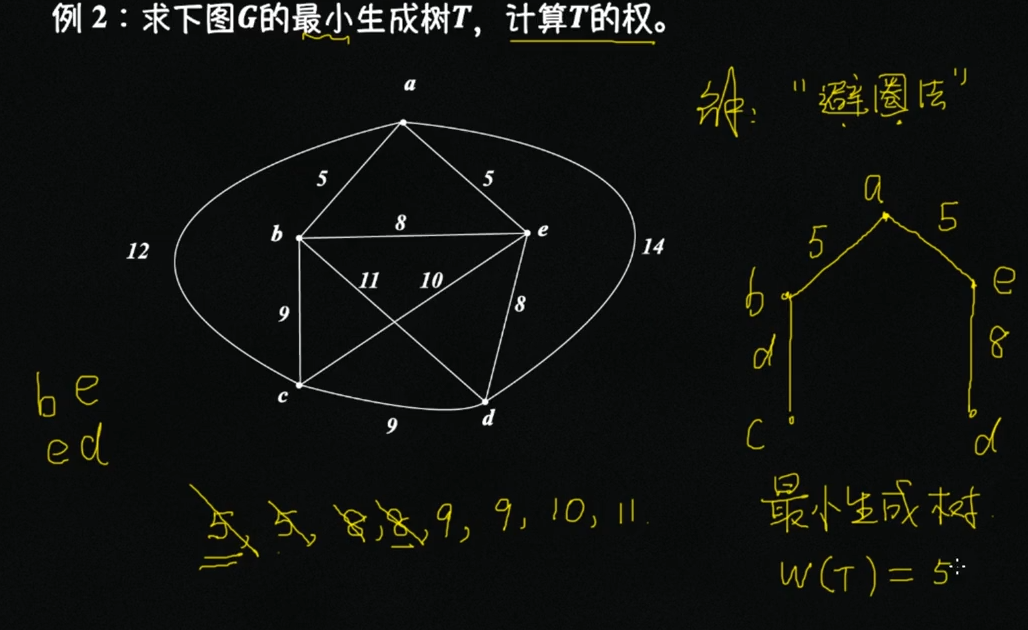 例 2：求下图G的最小生成树T，计算T的权。
a
解："避圈法"
5
5
b
8
e
12
14
11
10
9
8
c
9
d
a
5
5
b
e
d
8
c
d
b e
e d
5, 5, 8, 8, 9, 9, 10, 11.
最小生成树
W(T) = 5